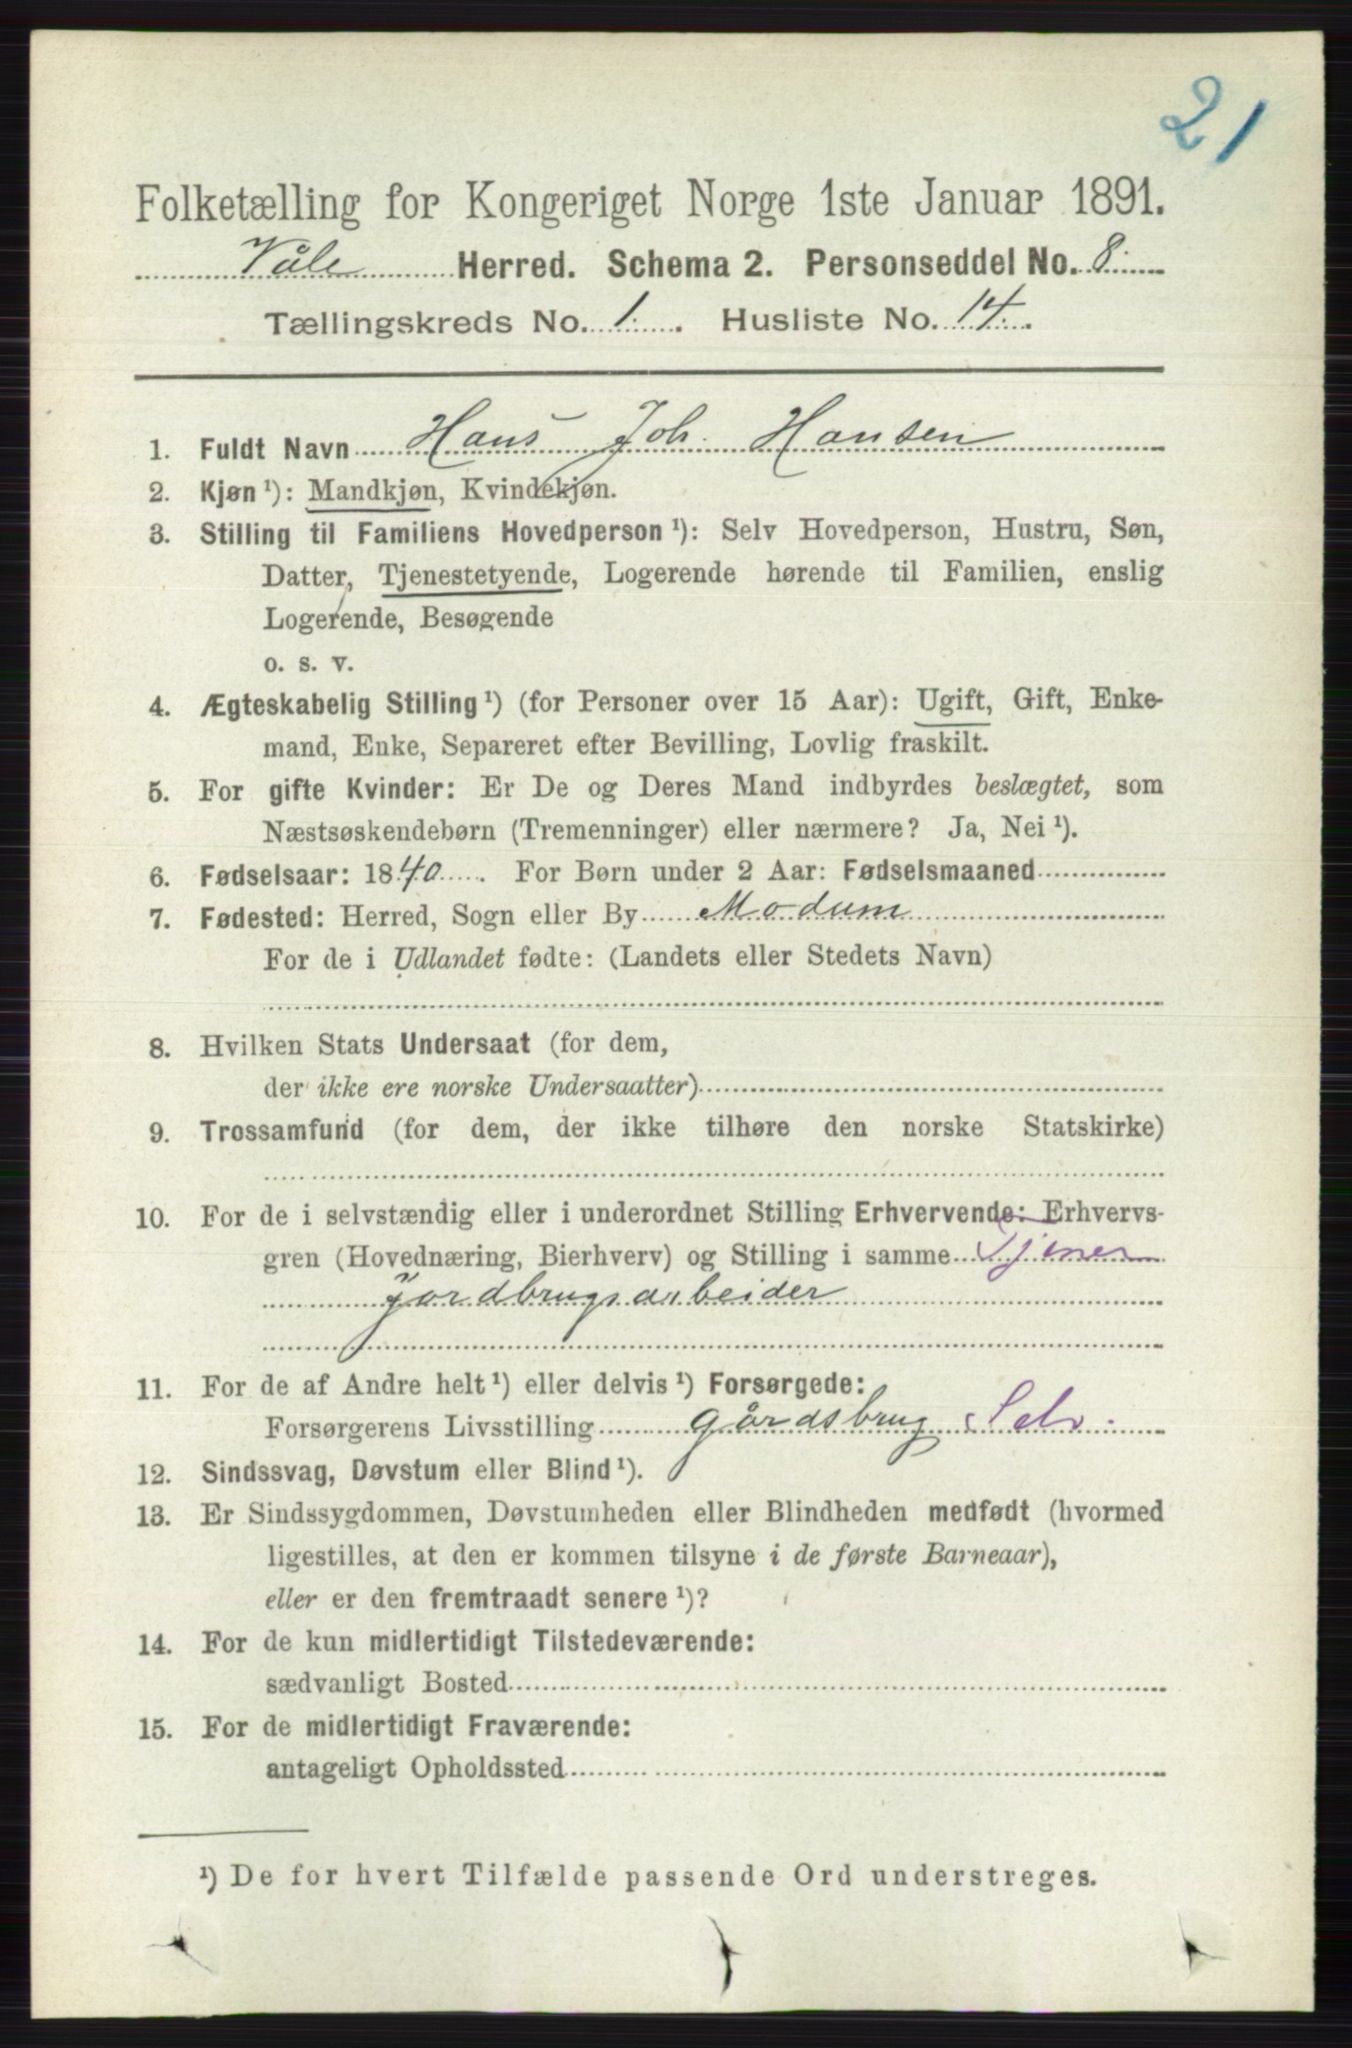 21
Folketælling for Kongeriget Norge 1ste Januar 1891.
Våle Herred. Schema 2. Personseddel No. 8.
Tællingskreds No. 1. Husliste No. 14.
1. Fuldt Navn Hans Joh. Hansen
2. Kjøn ¹): Mandkjøn, Kvindekjøn.
3. Stilling til Familiens Hovedperson ¹): Selv Hovedperson, Hustru, Søn,
Datter, Tjenestetyende, Logerende hørende til Familien, enslig
Logerende, Besøgende
o. s. v.
4. Ægteskabelig Stilling ¹) (for Personer over 15 Aar): Ugift, Gift, Enke-
mand, Enke, Separeret efter Bevilling, Lovlig fraskilt.
5. For gifte Kvinder: Er De og Deres Mand indbyrdes beslægtet, som
Næstsøskendebørn (Tremenninger) eller nærmere? Ja, Nei ¹).
6. Fødselsaar: 1840. For Børn under 2 Aar: Fødselsmaaned
7. Fødested: Herred, Sogn eller By Modum
For de i Udlandet fødte: (Landets eller Stedets Navn)
8. Hvilken Stats Undersaat (for dem,
der ikke ere norske Undersaatter)
9. Trossamfund (for dem, der ikke tilhøre den norske Statskirke)
10. For de i selvstændig eller i underordnet Stilling Erhvervende: Erhvervs-
gren (Hovednæring, Bierhverv) og Stilling i samme Tjener
Jordbrugsarbeider
11. For de af Andre helt ¹) eller delvis ¹) Forsørgede:
Forsørgerens Livsstilling gårdsbrug Selv.
12. Sindssvag, Døvstum eller Blind ¹).
13. Er Sindssygdommen, Døvstumheden eller Blindheden medfødt (hvormed
ligestilles, at den er kommen tilsyne i de første Barneaar),
eller er den fremtraadt senere ¹)?
14. For de kun midlertidigt Tilstedeværende:
sædvanligt Bosted
15. For de midlertidigt Fraværende:
antageligt Opholdssted
¹) De for hvert Tilfælde passende Ord understreges.